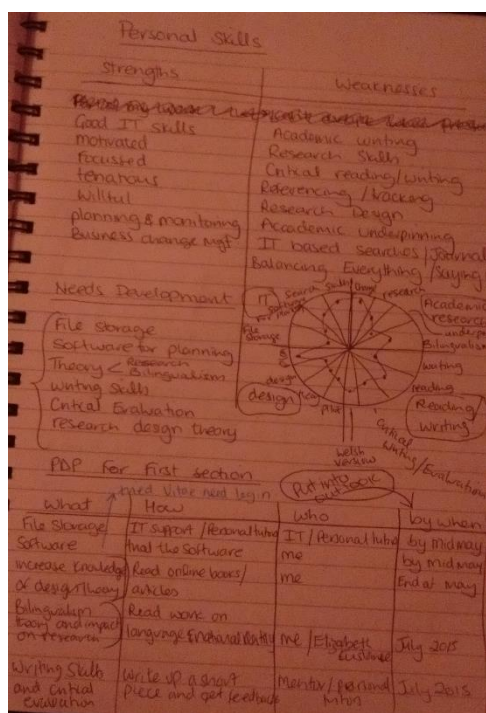 Personal Skills
Strengths
Good IT Skills
motivated
Focussted
tenatous
Willful
planning & monitoring
Business change Mgt
Weaknesses
Academic writing
Research Skills
Critical reading/writing
Referencing / tracking
Research Design
Academic underpinning
IT based searches / Journal
Balancing Everything / saying
Needs Development
File Storage
Software for planning
Theory < Research
Bilingualism
Writing Skills
Critical Evaluation
research design theory
IT
search
research
Academic
research
Bilingualism
file
storage
writing
reading
design
Reading
Writing
Critical
Writing/Evaluation
Welsh
Version
PDP For First section
Put into
outlook
need Vitae need login
What
How
who
by when
File Storage
IT Support / Personal tutor
IT / Personal tutor
by mid may
Software
trial the software
me
by mid may
increase knowledge
of design theory
Read online books/
articles
me
End of May
Bilingualism
theory and impact
on research
Read work on
language
me / Elizabeth
July 2015
Writing Skills
and critical
evaluation
Write up a short
piece and get feedback
Mentor / personal
tutor
July 2015